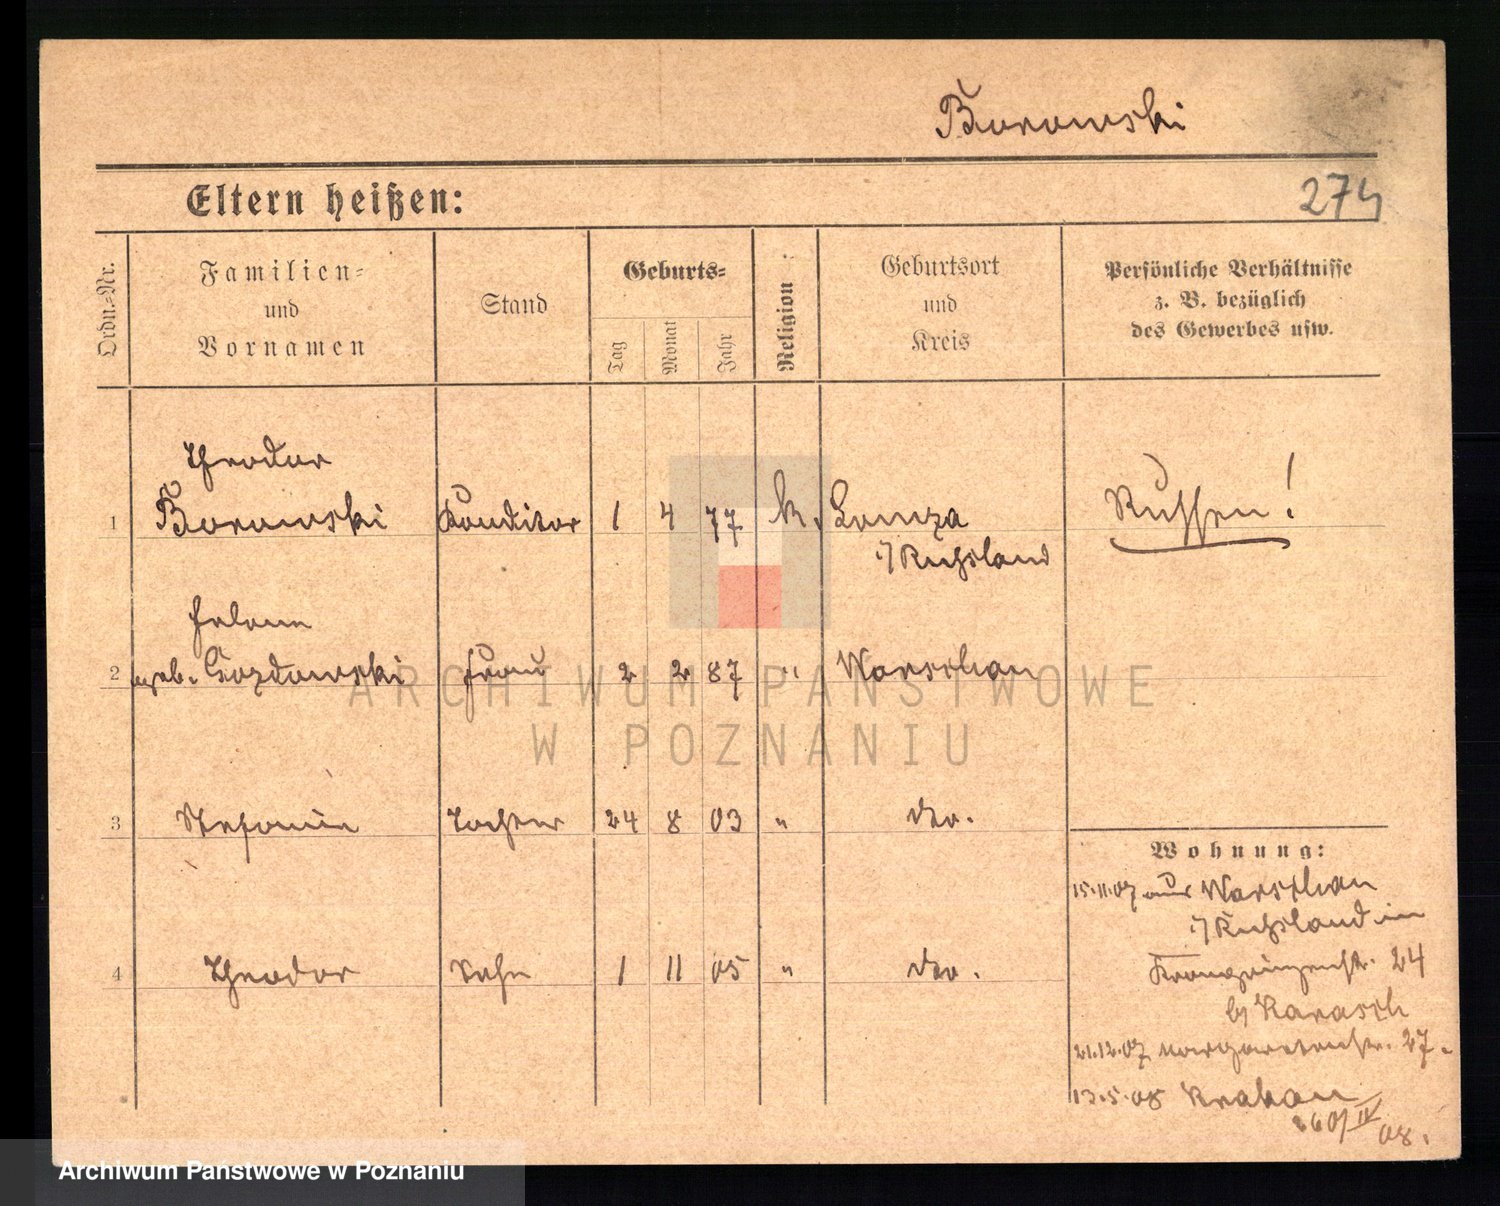 Borowski
Eltern heißen:
274
Ordn.-Nr.
Familien-
und
Vornamen
Stand
Geburts-
Tag
Monat
Jahr
Religion
Geburtsort
und
Kreis
Persönliche Verhältnisse
z. B. bezüglich
des Gewerbes usw.
Theodor
1 Borowski Konditor 1 4 77 k. Lomza
i/Russland
Russen!
Helene
2 geb. Gozdowski Frau 2 2 87 " Warschau
3 Stefanie Tochter 24 8 03 " do.
4 Theodor Sohn 1 11 05 " do.
Wohnung:
15.11.07 aus Warschau
i/Russland in
Kronprinzenstr. 24
b/ Karasch
21.12.07 Margaretenstr. 27.
13.5.08 Krakau
260/IV
08.
ARCHIWUM PAŃSTWOWE
W POZNANIU
Archiwum Państwowe w Poznaniu